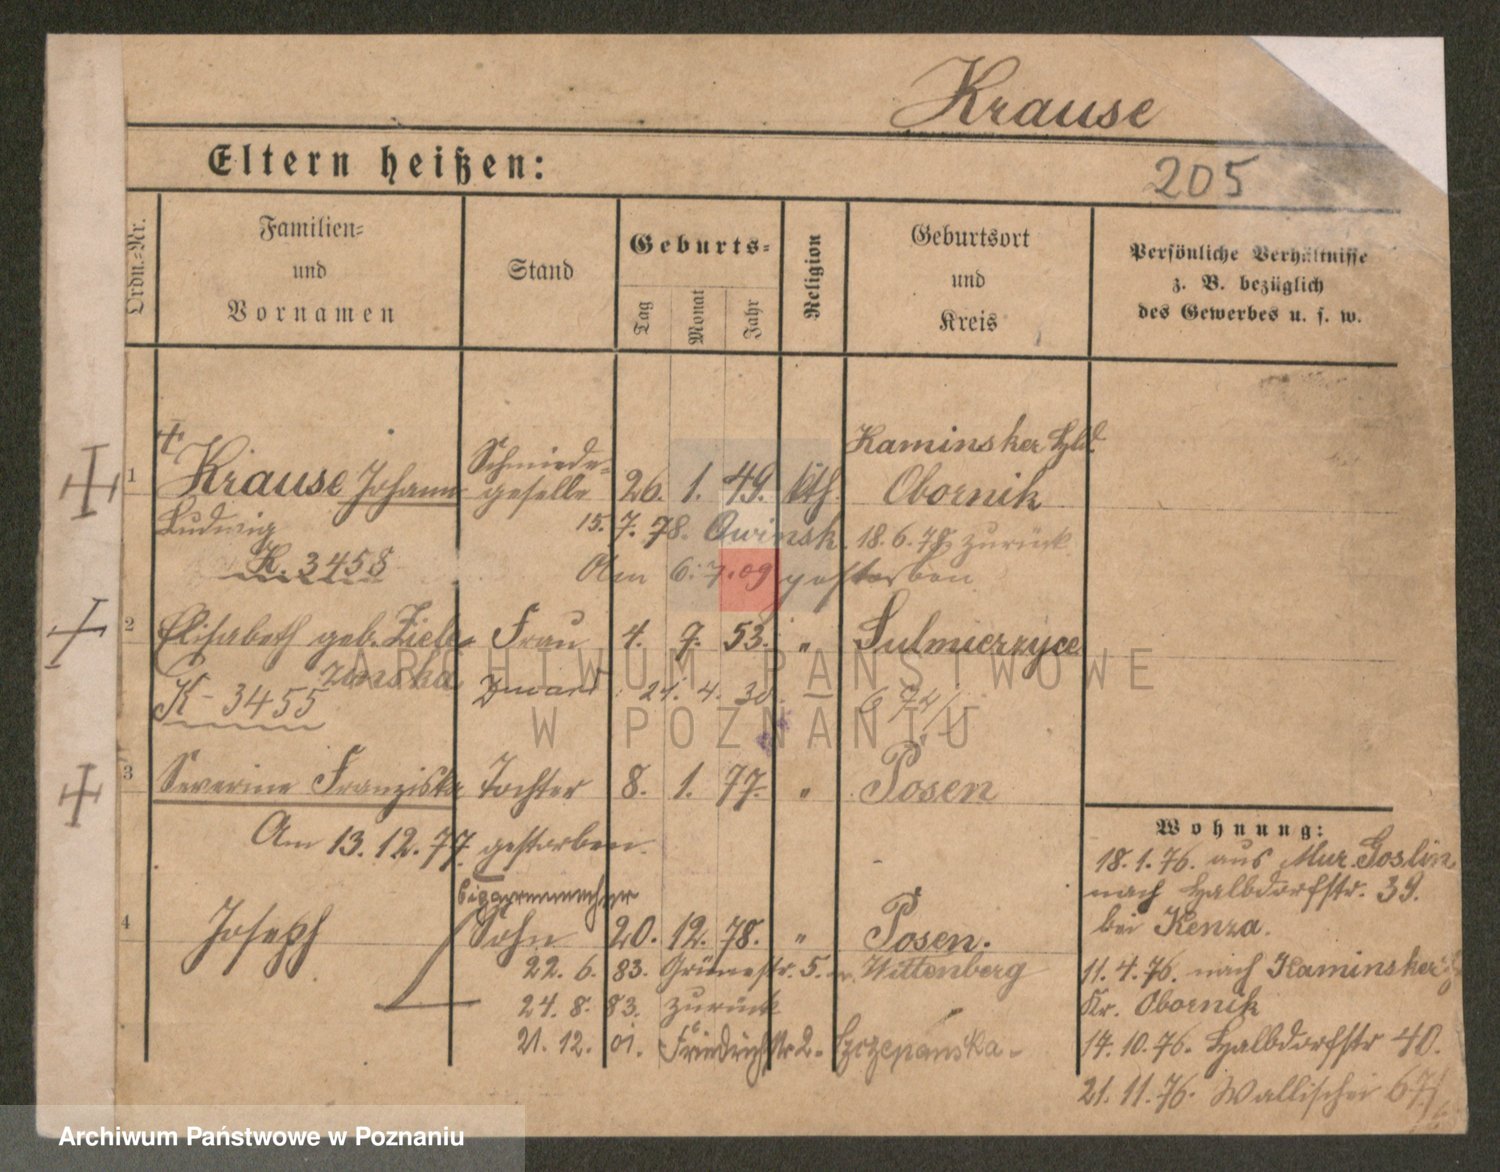 Krause
205
Eltern heißen:
Ordn.-Nr.
Familien-
und
Vornamen
Stand
Geburts-
Tag
Monat
Jahr
Religion
Geburtsort
und
Kreis
Persönliche Verhältnisse
z. B. bezüglich
des Gewerbes u. s. w.
1
Krause Johann
Schmiede-
geselle
26. 1. 49. kth.
Kaminsker Hld.
Obornik
Ludwig
15. 7. 78. Owinsk. 18.6.78 zurück
K. 3458
Am 6.7.09 gestorben
2
Elisabeth geb. Ziele-
Frau
4. 9. 53. "
Sulmierzyce
zinska
21. 4. 30. —
K-3455
3
Severine Franziska
Tochter
8. 1. 77. "
Posen
Am 13.12.77 gestorben.
Wohnung:
18.1.76. aus Mur. Goslin
nach Halbdorfstr. 39.
bei Kenza.
4
Joseph
Cigarrenmacher
Sohn
20. 12. 78. "
Posen.
22. 6. 83. Grünestr. 5. Wittenberg
11.4.76. nach Kaminsker
24. 8. 83. zurück
Kr. Obornik
21. 12. 01. Friedrichstr 2. Szczepanska
14.10.76. Halbdorfstr 40.
21.11.76. Wallischei
ARCHIWUM PAŃSTWOWE
W POZNANIU
Archiwum Państwowe w Poznaniu